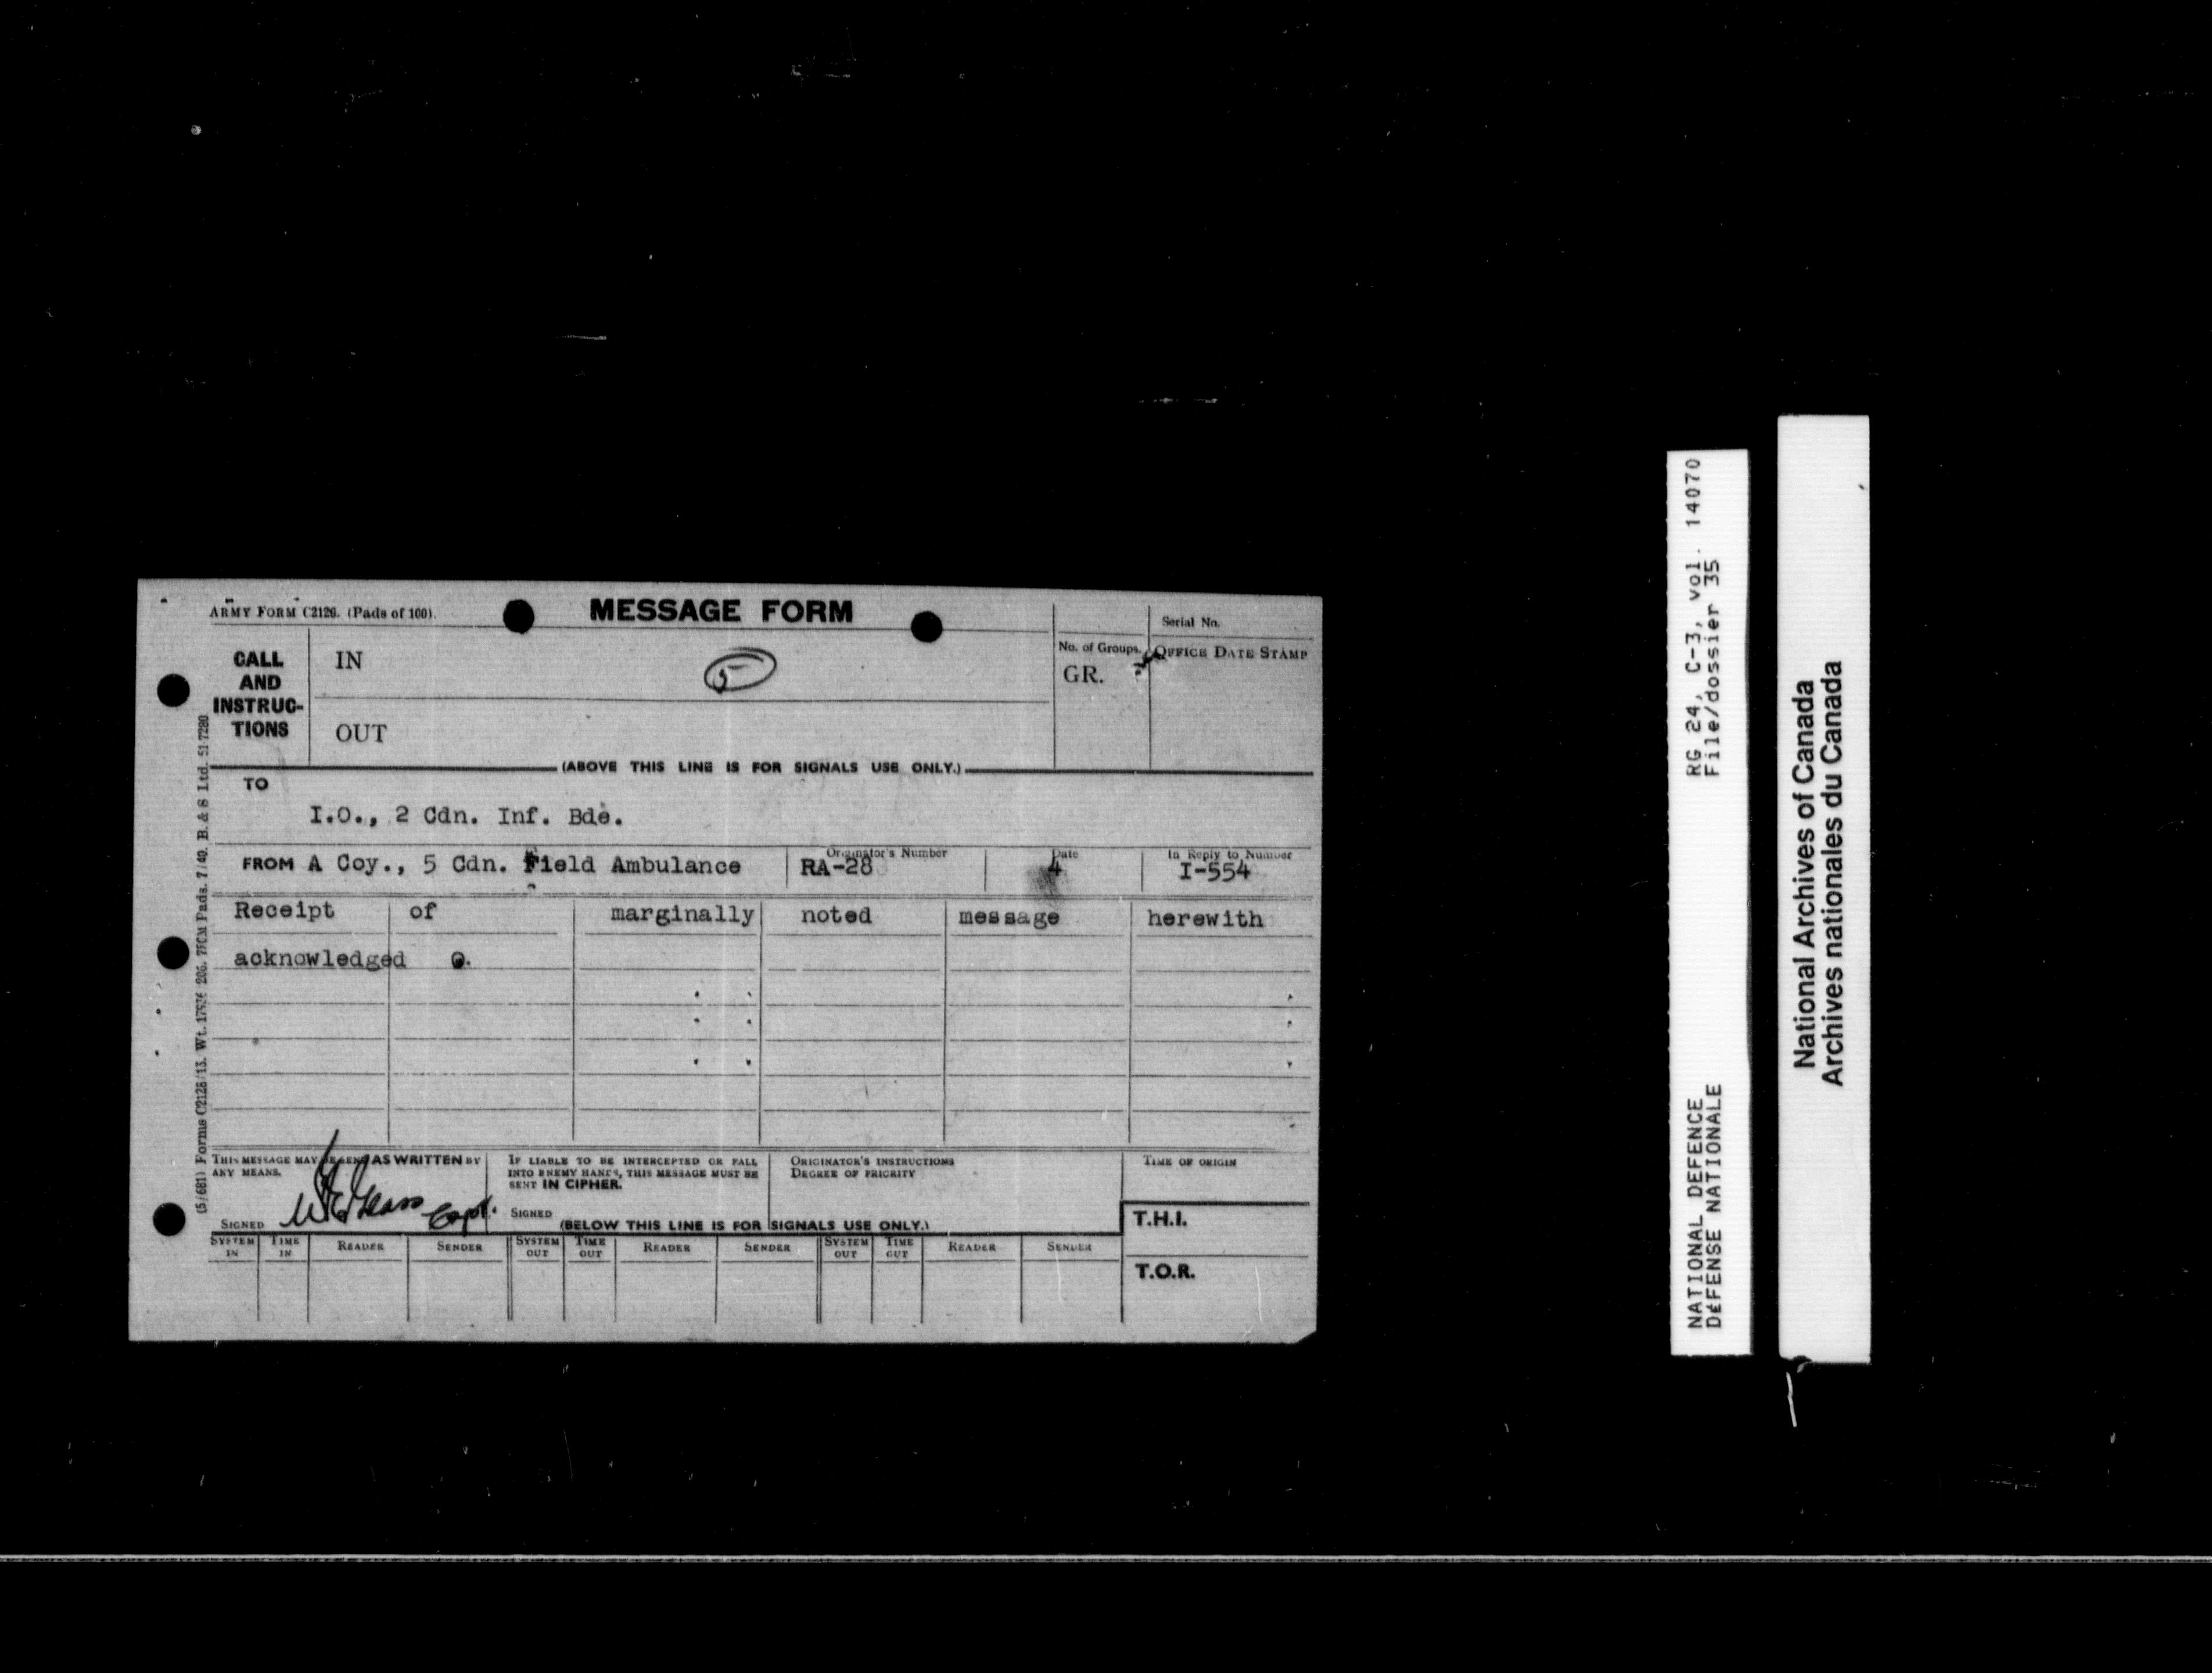 ARMY FORM C2126. (Pads of 100).
MESSAGE FORM
Serial No.
CALL AND INSTRUC-TIONS
IN
5
No. of Groups.
GR.
OFFICE DATE STAMP
OUT
(ABOVE THIS LINE IS FOR SIGNALS USE ONLY.)
TO
I.O., 2 Cdn. Inf. Bde.
FROM A Coy., 5 Cdn. Field Ambulance
Originator's Number
RA-28
Date
4
In Reply to Number
I-554
Receipt of marginally noted message herewith
acknowledged O.
THIS MESSAGE MAY BE SENT AS WRITTEN BY
ANY MEANS.
SIGNED
Capt.
IF LIABLE TO BE INTERCEPTED OR FALL
INTO ENEMY HANDS, THIS MESSAGE MUST BE
SENT IN CIPHER.
SIGNED
ORIGINATOR'S INSTRUCTIONS
DEGREE OF PRIORITY
TIME OF ORIGIN
(BELOW THIS LINE IS FOR SIGNALS USE ONLY.)
T.H.I.
SYSTEM IN TIME IN READER SENDER SYSTEM OUT TIME OUT READER SENDER SYSTEM OUT TIME OUT READER SENDER
T.O.R.
RG 24, C-3, vol. 14070
File/dossier 35
NATIONAL DEFENCE
DÉFENSE NATIONALE
National Archives of Canada
Archives nationales du Canada